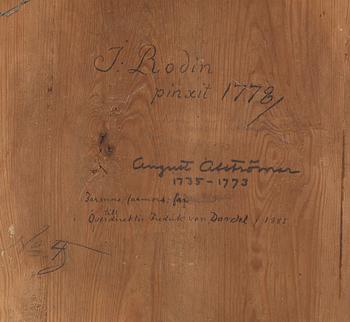 J. Rodin
pinxit 1778/
August Alströmer
1735-1773
farmors, farmors, far
till
Överdirektör Fredrik von Dardel / 1885
No 4